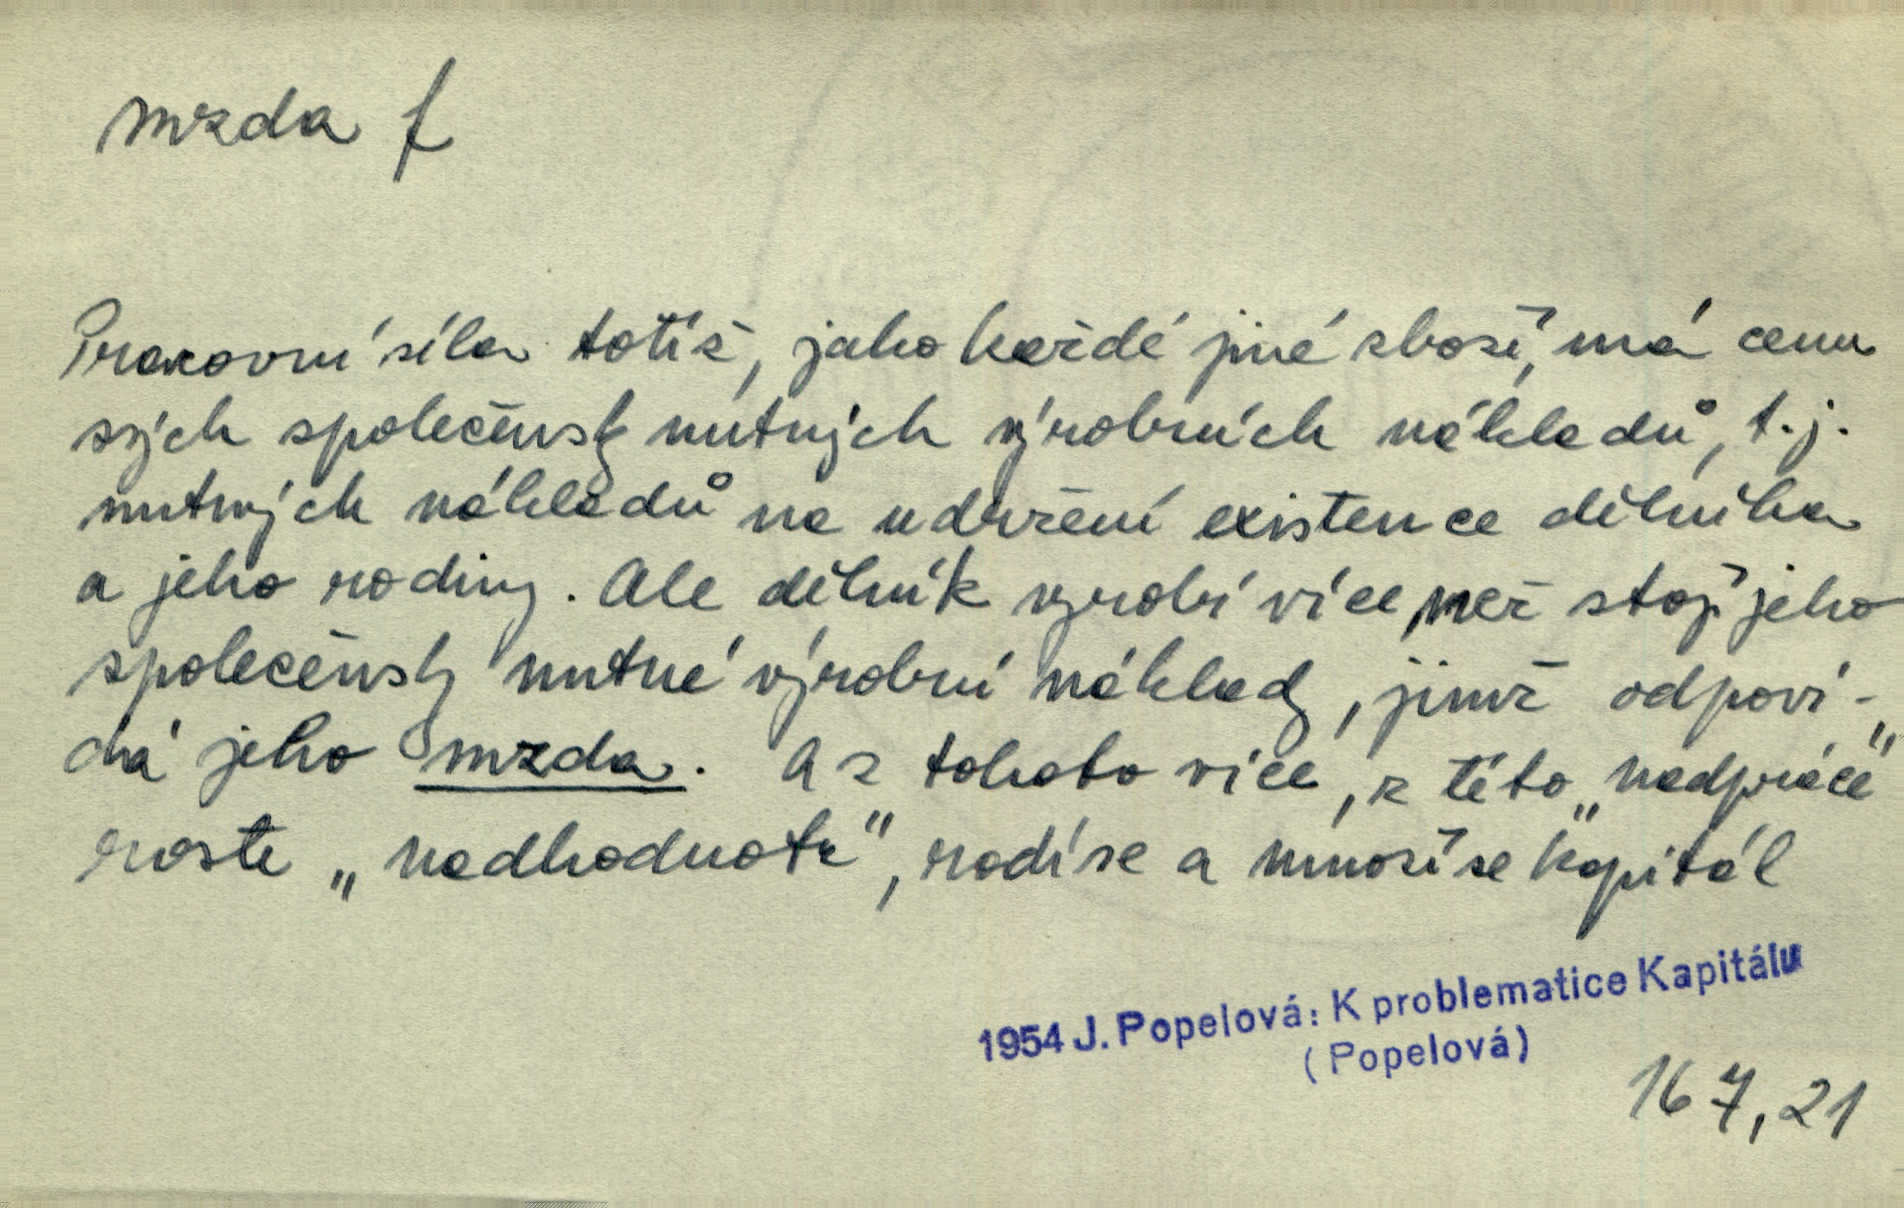 mzda f
Pracovní síla totiž, jako každé jiné zboží, má cenu
svých společensky nutných výrobních nákladů, t. j.
nutných nákladů na udržení existence dělníka
a jeho rodiny. Ale dělník vyrobí více, než stojí jeho
společensky nutné výrobní náklady, jimž odpoví-
dá jeho mzda. A z tohoto více, z této „nadpráce"
roste „nadhodnota", rodí se a množí se kapitál
1954 J. Popelová: K problematice Kapitálu
(Popelová)
167, 21